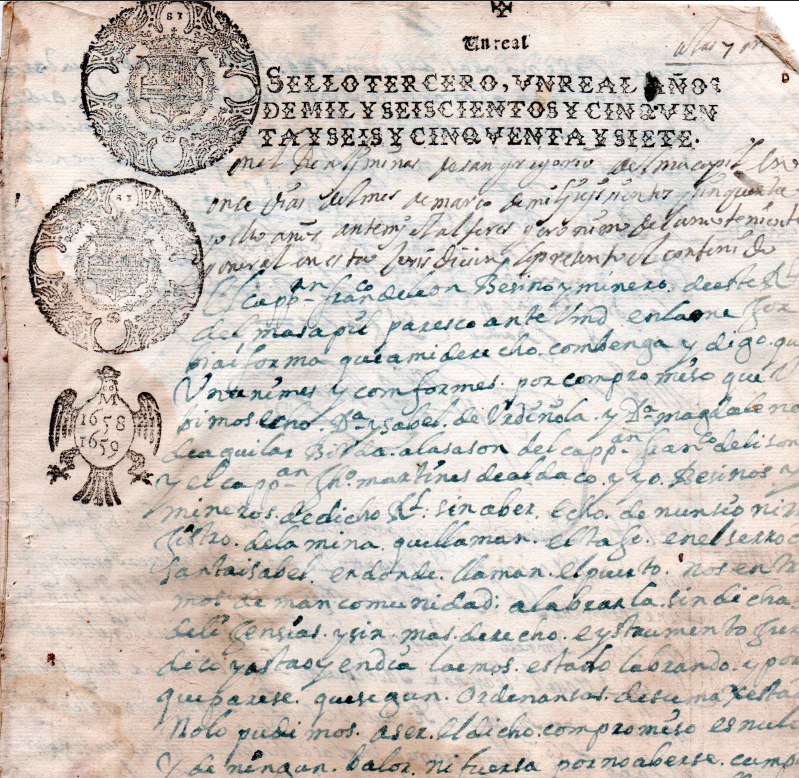 Un real
SELLO TERCERO, VN REAL AÑOS
DE MIL Y SEISCIENTOS Y CINQVEN
TA Y SEIS Y CINQVENTA Y SIETE.
en el Real i minas de san gregorio del masapil En
once dias del mes de março de mil y seis sientos y sinquenta
y ocho años antemi el alferes Geronimo del teniente
general en esta Jurisdicion se presento el contenido
El cappan franco de leon Besino y minero de este Rl
del masapil paresco ante Vmd en la me Jor
bia i forma que a mi derecho combenga y digo que
Unanimes y comformes por compromiso que U
bimos echo Da ysabel de Urdiñola y Da magdaleno
de aguilar Biuda a la sason del cappan franco de lison
y el cappan Jho martines de aldaco y yo Besinos y
mineros de dicho Rl sin aber echo denunsio ni re
Jistro de la mina que llaman el taJo en el serro d
santa isabel en donde llaman el puerto nos entra
mos de man comunidad a labrarla sin dichas
deliJensias y sin mas derecho e ystrumento Juri
dico y asta oy en dia la emos estado labrando y por
que parese que segun ordenansas de su maxesta
No lo pudimos aser el dicho compromiso es nulo
Y de ningun balor ni fuersa por no aberse cump
83
83
M
1658
1659